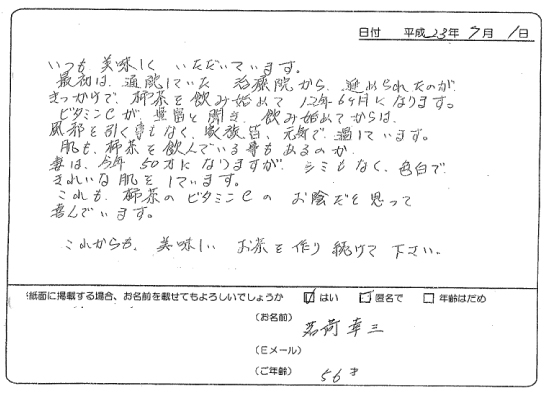 日付 平成23年7月1日
いつも 美味しく いただいています。
最初は、通院していた 治療院から、進められたのが
きっかけで、柿茶を飲み始めて 12年6ヶ月になります。
ビタミンCが、豊富と聞き、飲み始めてからは、
風邪を引く事もなく、家族皆、元気で過しています。
肌も、柿茶を飲んでいる事もあるのか
妻は、今年 50才になりますが、シミもなく、色白で
きれいな肌を しています。
これも、柿茶の ビタミンCの お陰だと思って
喜んでいます。
これからも、美味しい お茶を作り続けて下さい。
紙面に掲載する場合、お名前を載せてもよろしいでしょうか はい 匿名で 年齢はだめ
(お名前)
茗荷幸三
(Eメール)
(ご年齢) 56才